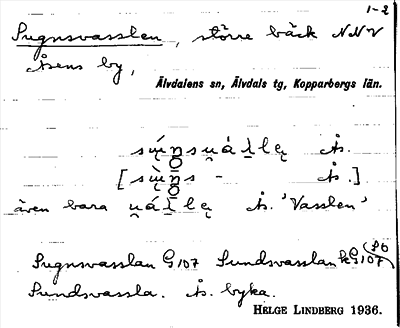 1-2
Sugnsvasslen, större bäck NNV
Åsens by,
Älvdalens sn, Älvdals tg, Kopparbergs län.
Ås.
[ - Ås.]
även bara Ås. 'Vasslen'
Sugnsvasslan G 107 Sundsvasslan
Sundsvassla. Ås. byka.
HELGE LINDBERG 1936.